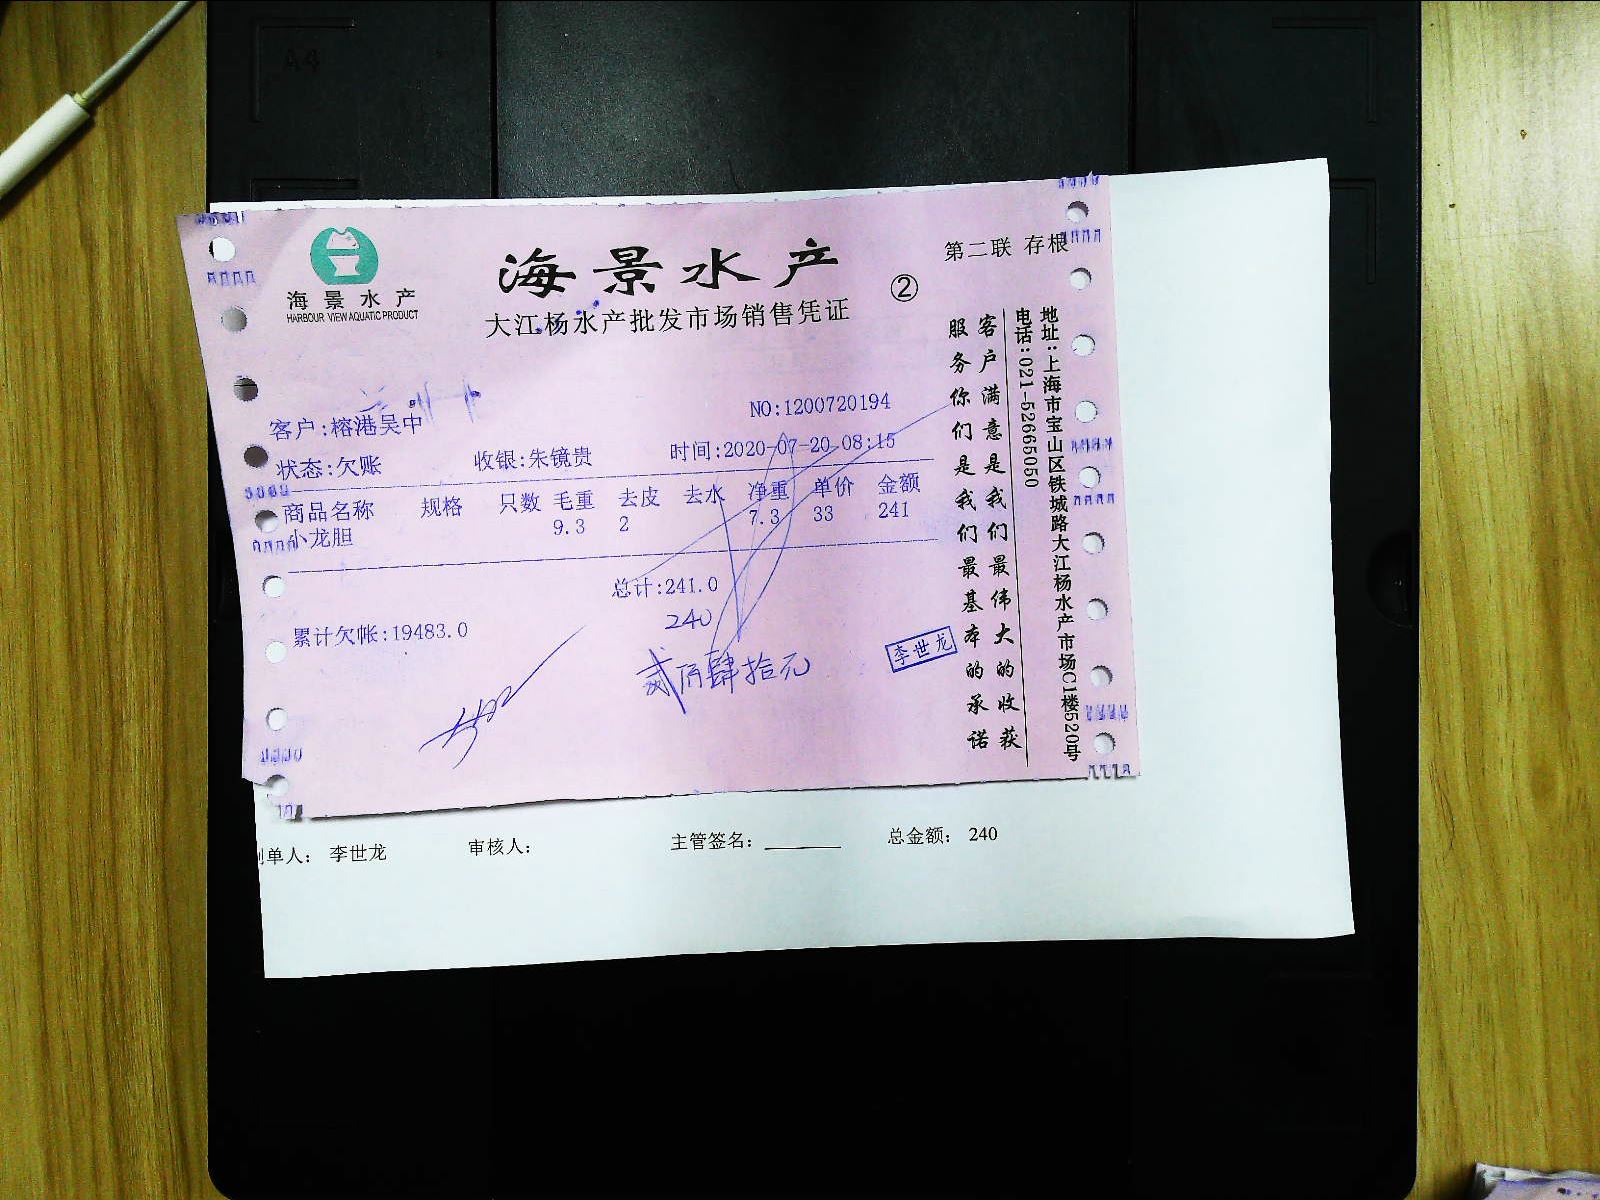 A4
海景水产
HARBOUR VIEW AQUATIC PRODUCT
海景水产
大江杨水产批发市场销售凭证
②
第二联 存根
客户:榕港吴中
NO:1200720194
状态:欠账 收银:朱镜贵 时间:2020-07-20 08:15
商品名称 规格 只数 毛重 去皮 去水 净重 单价 金额
小龙胆 9.3 2 7.3 33 241
总计:241.0
240
累计欠帐:19483.0
贰佰肆拾元
李世龙
客户满意是我们最伟大的收获
服务你们是我们最基本的承诺
地址:上海市宝山区铁城路大江杨水产市场C1楼520号
电话:021-52665050
单人: 李世龙 审核人: 主管签名: 总金额: 240